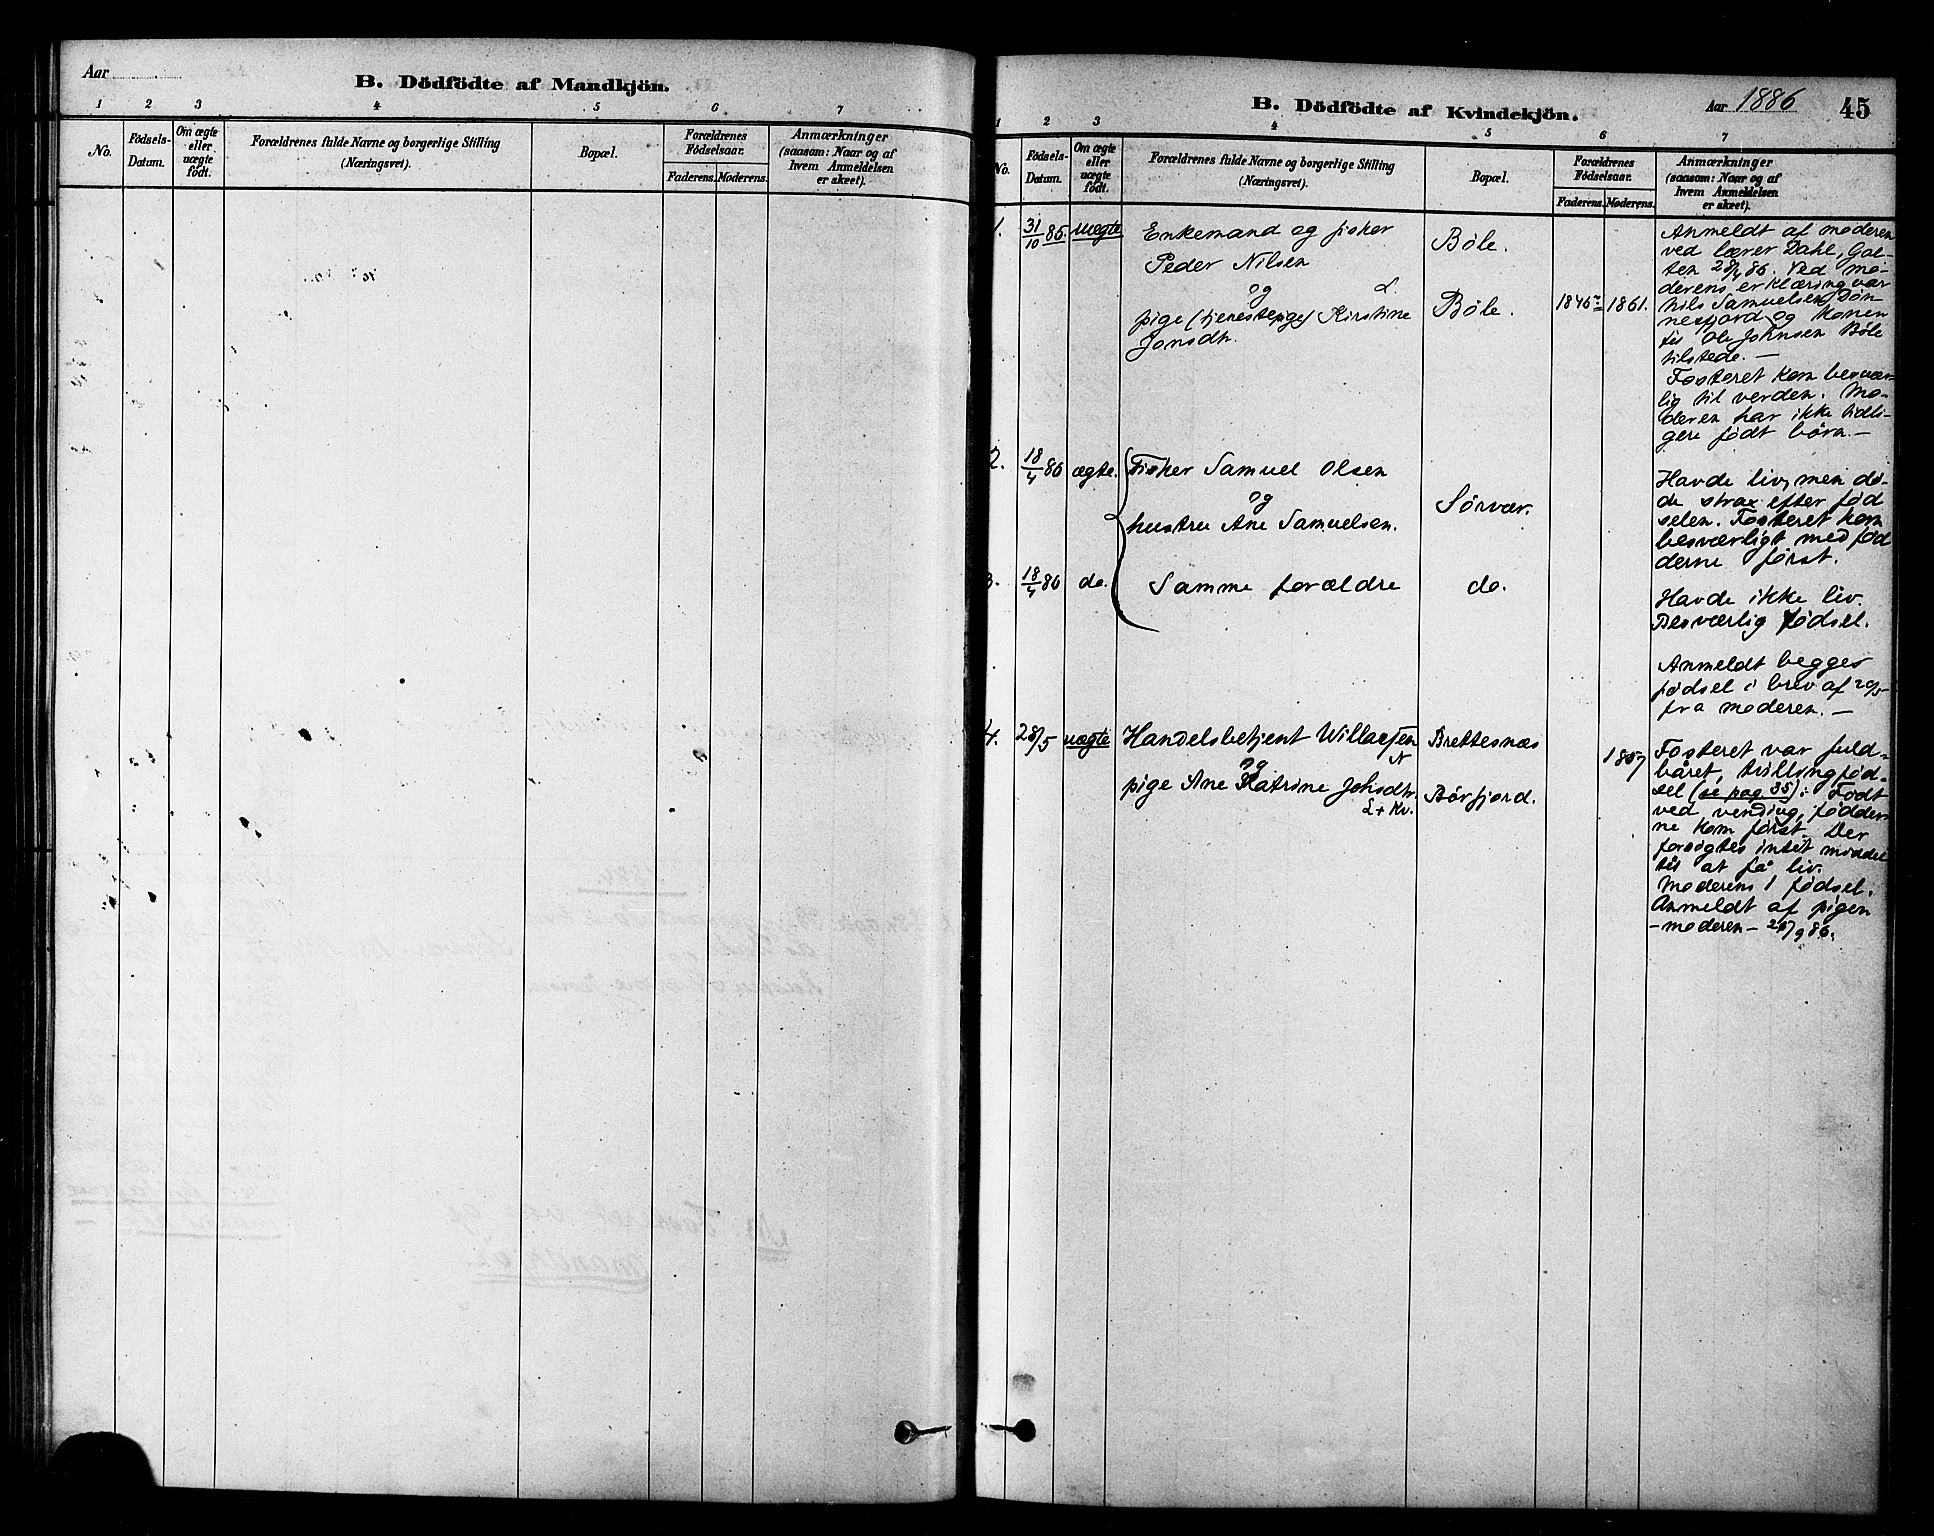 Aar
B. Dödfödte af Mandkjön.
1 2 3 4 5 6 7
No.
Födsels-
Datum.
Om ægte
eller
uægte
födt.
Forældrenes fulde Navne og borgerlige Stilling
(Næringsvei).
Bopæl.
Forældrenes
Födselsaar.
Faderens. Moderens.
Anmærkninger
(saasom: Naar og af
hvem Anmeldelsen
er skeet).
B. Dödfödte af Kvindekjön.
Aar 1886
45
1 2 3 4 5 6 7
No.
Födsels-
Datum.
Om ægte
eller
uægte
födt.
Forældrenes fulde Navne og borgerlige Stilling
(Næringsvei).
Bopæl.
Forældrenes
Födselsaar.
Faderens. Moderens.
Anmærkninger
(saasom: Naar og af
hvem Anmeldelsen
er skeet).
1. 31/10 85. uægte
Enkemand og fisker
Peder Nilsen
og
pige (tjenestepige) Kirstine
Jonsdtr.
Bøle.
Bøle.
1846 1861.
Anmeldt af moderen
ved lærer Dahl, Gal-
ten 28/4 86. Ved mo-
derens erklæring var
Nils Samuelsen Døn
nesfjord og konen
til Ole Johnsen Bøle
tilstede. —
Fosteret kom besvær-
lig til verden. Mo-
deren har ikke tidli-
gere født børn. —
2. 18/4 86 ægte.
Fisker Samuel Olsen
og
hustru Ane Samuelsen.
Sörvær.
Havde liv, men dø-
de strax efter fød
selen. Fosteret kom
besværligt med fød
derne først.
3. 18/4 86 do.
Samme forældre
do.
Havde ikke liv.
Besværlig fødsel.
Anmeldt begges
fødsel i brev af
fra moderen. —
4. 28/5 uægte
Handelsbetjent Willassen
N
og
pige Ane Katrine Johsdtr.
L + Kv.
Brettesnæs
Børfjord.
1857
Fosteret var fuld-
båret, tvillingfød-
sel (se pag 35): Født
ved vending, fødder-
ne kom først. Der
forsøgtes intet middel
til at få liv.
Moderens 1 fødsel.
Anmeldt af pigen
— moderen — 28/9 86.